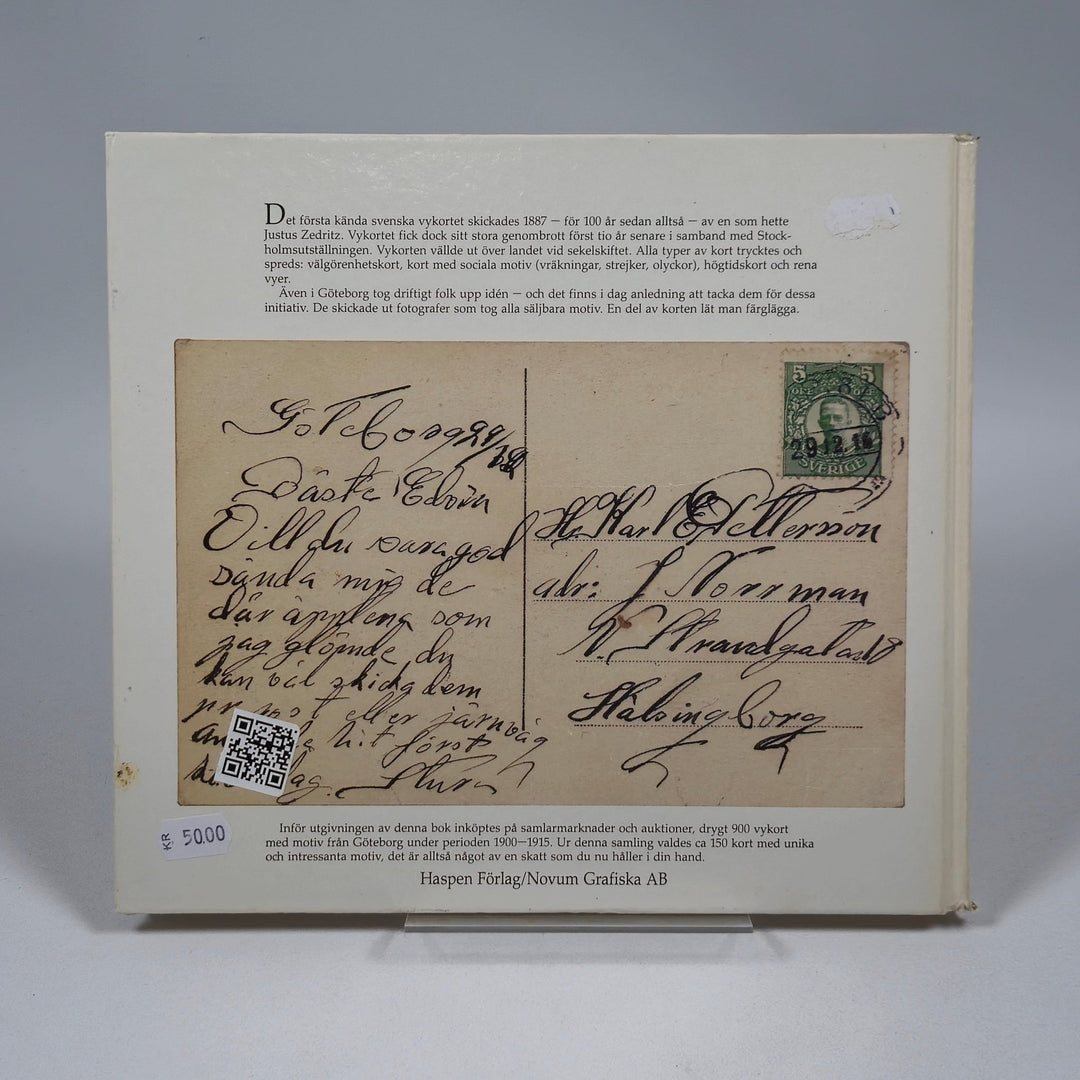 Det första kända svenska vykortet skickades 1887 — för 100 år sedan alltså — av en som hette
Justus Zedritz. Vykortet fick dock sitt stora genombrott först tio år senare i samband med Stock-
holmsutställningen. Vykorten vällde ut över landet vid sekelskiftet. Alla typer av kort trycktes och
spreds: välgörenhetskort, kort med sociala motiv (vräkningar, strejker, olyckor), högtidskort och rena
vyer.
Även i Göteborg tog driftigt folk upp idén — och det finns i dag anledning att tacka dem för dessa
initiativ. De skickade ut fotografer som tog alla säljbara motiv. En del av korten lät man färglägga.
Göteborg 29/12
Bäste Edvin
Vill du vara god
sända mig de
där äpplena som
jag glömde du
kan väl skicka dem
pr post eller järnväg
hit först
dag. Sture
5 5
ÖRE
29.12.
SVERIGE
H. Karl E Pettersson
adr: J Norrman
N. Strandgatan 18
Hälsingborg
KR 50.00
Inför utgivningen av denna bok inköptes på samlarmarknader och auktioner, drygt 900 vykort
med motiv från Göteborg under perioden 1900—1915. Ur denna samling valdes ca 150 kort med unika
och intressanta motiv, det är alltså något av en skatt som du nu håller i din hand.
Haspen Förlag/Novum Grafiska AB